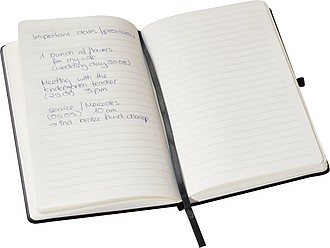 Important dates / promises
1 bunch of flowers
for my wife
(wedding day 30.08)
Meeting with the
kindergarten teacher
(25.09) 3 pm
service / Mercedes
(05.09) 10 am
→ incl. brake fluid change